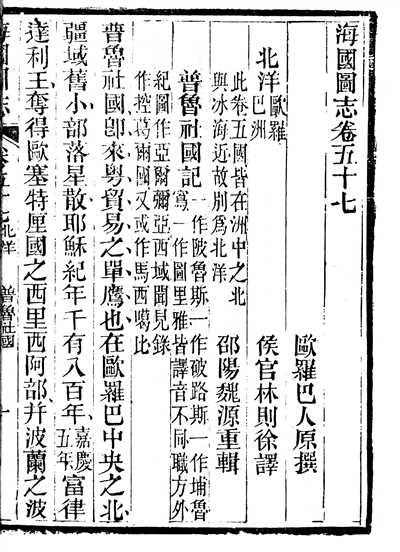 海國圖志卷五十七
歐羅巴人原撰
北洋 歐羅巴洲 侯官林則徐譯
此卷五國皆在洲中之北
與冰海近故別爲北洋
邵陽魏源重輯
普魯社國記 一作陂魯斯一作破路斯一作埔魯
寫一作圖里雅皆譯音不同職方外
紀圖作亞爾彌亞西域聞見錄
作控葛爾國又或作馬西噶比
普魯社國卽來粵貿易之單鷹也在歐羅巴中央之北
疆域舊小部落星散耶穌紀年千有八百年、嘉慶五年富律
達利王奪得歐塞特厘國之西里西阿部、并波蘭之波
海國圖志 卷五十七 北洋 普魯社國 一